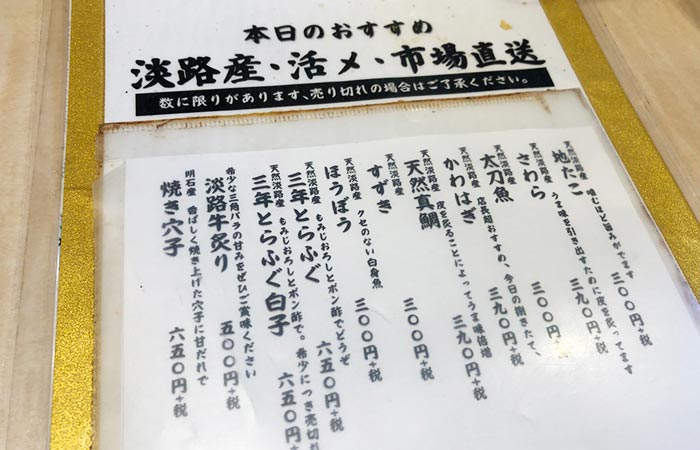 本日のおすすめ
淡路産・活〆・市場直送
数に限りがあります、売り切れの場合はご了承ください。
天然淡路産
地たこ
噛むほど旨みがでます
三〇〇円+税
天然淡路産
さわら
うま味を引き出すために皮を炙ってます
三九〇円+税
天然淡路産
太刀魚
店長超おすすめ、今日の捌きたて、
三〇〇円+税
天然淡路産
かわはぎ
三九〇円+税
天然淡路産
天然真鯛
皮を炙ることによってうま味倍増
三九〇円+税
天然淡路産
すずき
三〇〇円+税
天然淡路産
ほうぼう
クセのない白身魚
三〇〇円+税
天然淡路産
三年とらふぐ
もみじおろしとポン酢でどうぞ
六五〇円+税
天然淡路産
三年とらふぐ白子
もみじおろしとポン酢で。希少につき売切れ
六五〇円+税
希少な三角バラの甘みをぜひご賞味ください
淡路牛炙り
五〇〇円+税
明石産
焼き穴子
香ばしく焼き上げた穴子に甘だれで
六五〇円+税